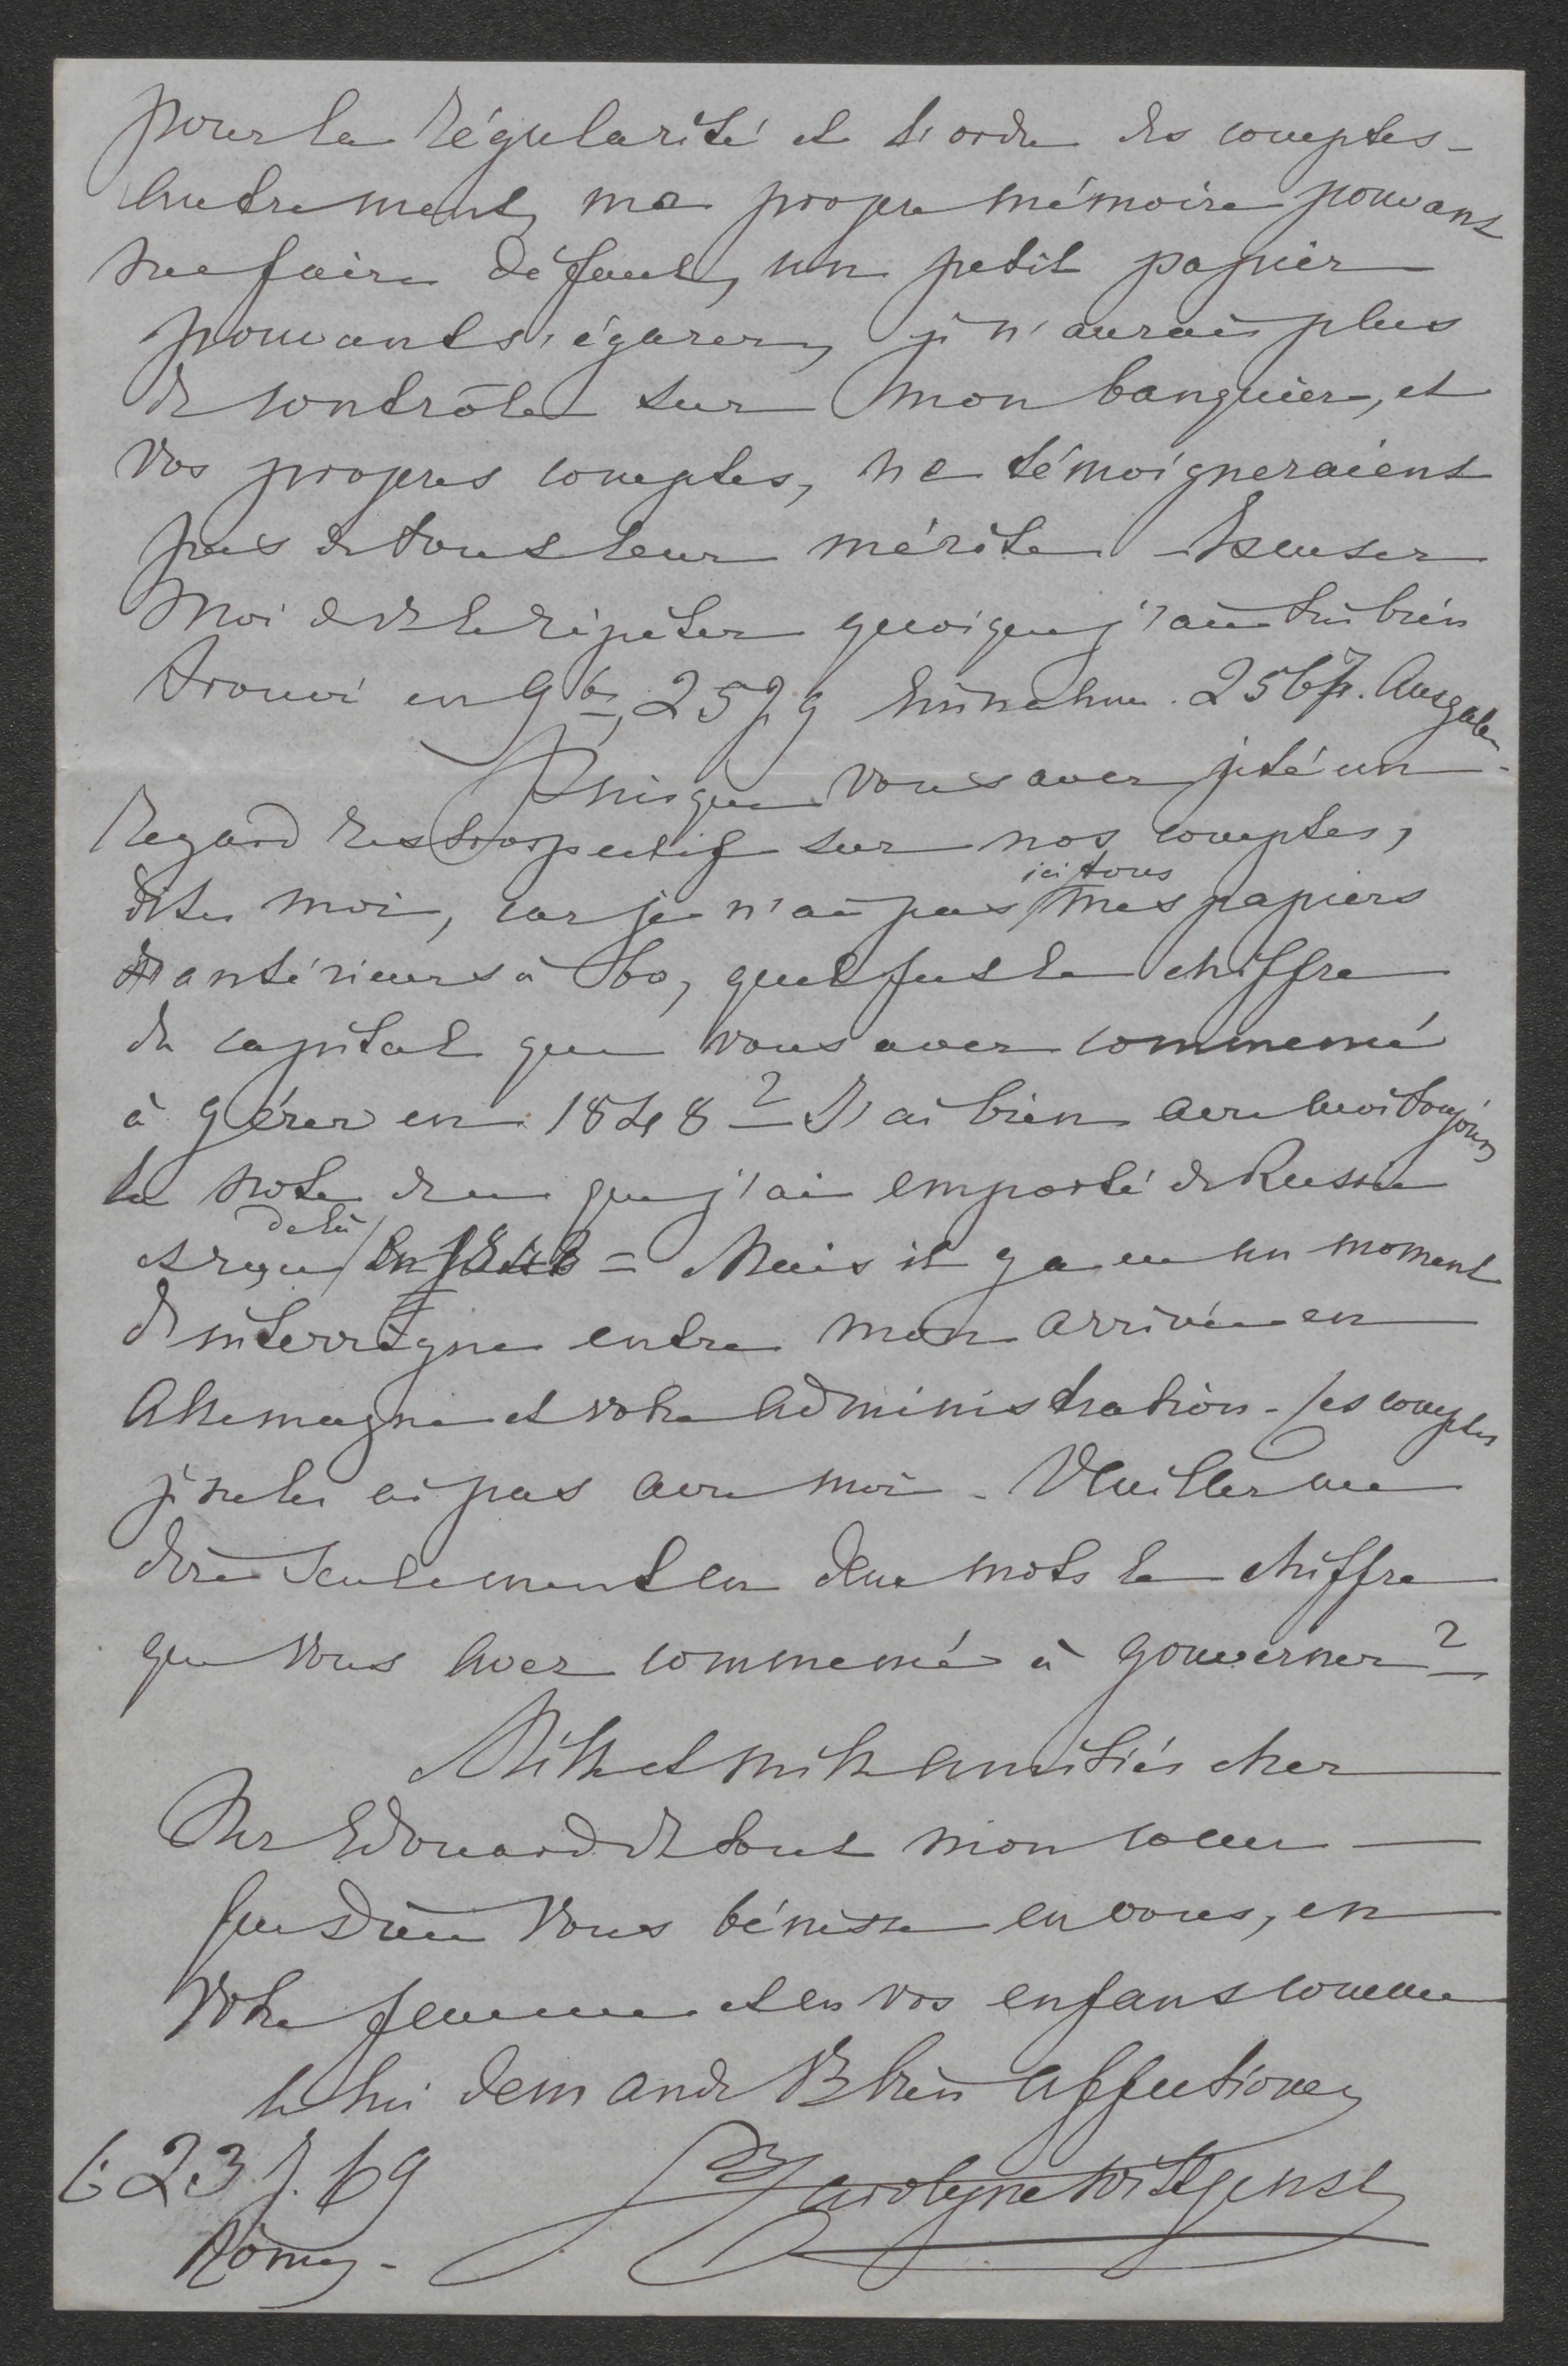 pour la régularité et l'ordre des comptes -
Autrement, ma propre mémoire pouvant
me faire défaut, un petit papier
pouvant s'égarer, je n'aurais plus
de contrôle sur mon banquier, et
vos propres comptes, ne témoigneraient
pas de tout leur mérite - Excuser
moi de le répéter quoique j'aie très bien
trouvé en 9b 2579 Einnahme. 2567. Ausgaben -
Puisque vous avez jeté un
regard restrospectif sur nos comptes,
dites moi, car je n'ai pas ici tous mes papiers
antérieurs à 60, quel fut le chiffre
du capital que vous avez commencé
à gérer en 1848? J'ai bien avec moi toujours
la note de ce que j'ai emporté de Russie
et reçu de là en 1848 = Mais il y a eu un moment
d'interrègne entre mon arrivée en
Allemagne et votre administration - ses comptes
je ne les ai pas avec moi - Veuillez me
dire seulement en deux mots le chiffre
que vous avez commencé à gouverner?
Mille et mille amitiés cher
Edouard de tout mon coeur -
Que Dieu vous bénisse en vous, en
votre femme et en vos enfans comme
le lui demande bien affectionée
23 69 Carolyne Wittgenst
Rome -